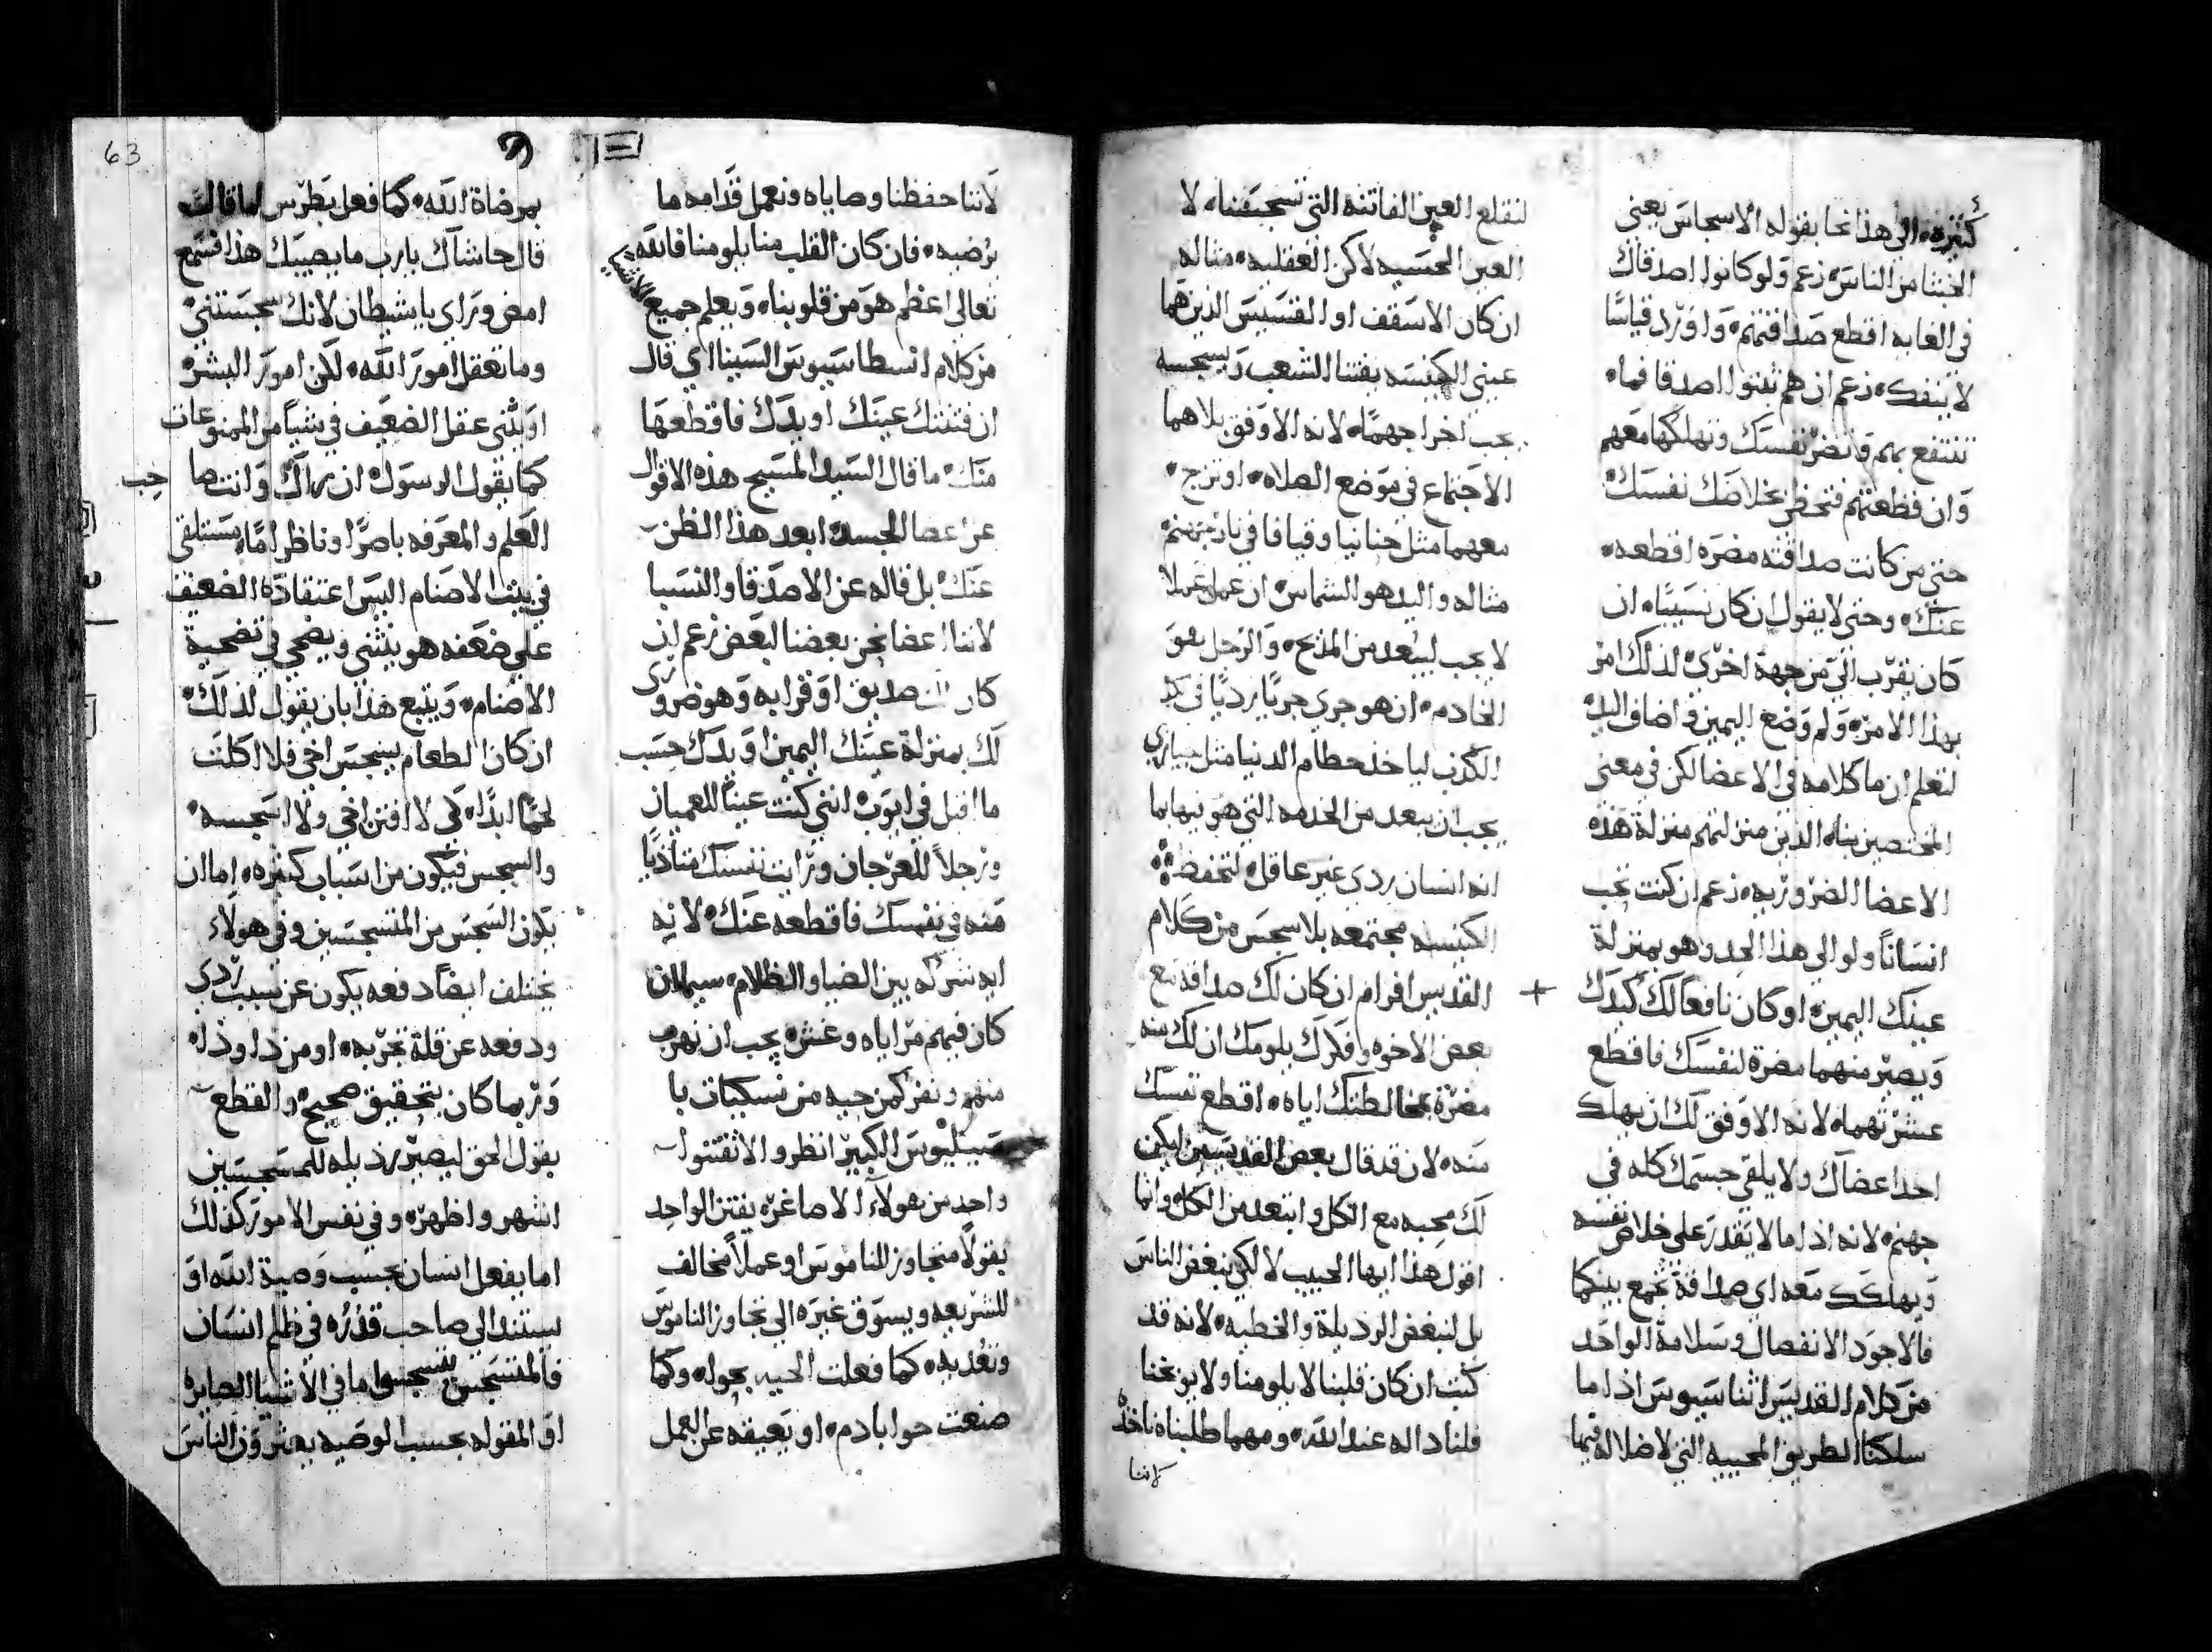 كثيره، الي هذا نحا بقوله الاسجاس يعني
الخبثا من الناس، زعم ولو كانوا اصدقاك
في الغايه اقطع صداقتهم، واورد قياسًا
لا ينفك، زعم ان هم ثبتوا اصدقا فما،
تنتفع بهم وتضر نفسك وتهلكها معهم
وان قطعتهم فتحظي بخلاصك نفسك،
حتي من كانت صداقته مضره اقطعه،
عنك، وحتي لا يقول ان كان نسيبًا، ان
كان يقرب الي من جهة اخري، لذلك امر
بهذا الامر، ولم وضع اليمين واضاف اليد،
لتعلم ان ما كلامه في الاعضا لكن في معني
المختصين بنا، الذين منزلتهم منزلة هذه
الاعضا الضروريه، زعم ان كنت تحب
انسانًا ولو الي هذا الحد وهو بمنزلة
عينك اليمين، او كان نافعًا لك كيدك
ويصير منهما مضرة لنفسك فاقطع
عشرتهما، لانه الاوفق لك ان يهلك
احد اعضاك ولا يلقي جسمك كله في
جهنم، لانه اذا ما لا يقدر علي خلاص نفسه
ويهلكك معه اي صداقة تجمع بينكما
فالاجود الانفصال وسلامة الواحد
من كلام القديس اثناسيوس اذا ما
سلكنا الطريق المحييه التي لا ضلاله فيها
لنقلع العين الفاتنه التي تسجسنا، لا
العين الحسيه لاكن العقليه، مثاله
ان كان الاسقف او القسيس الذين هما
عيني الكنيسه يفتنا الشعب ويسجسه
يجب اخراجهما، لانه الاوفق بلاهما
الاجتماع في موضع الصلاه، او نزج،
معهما مثل حنانيا وقيافا في نار جهنم،
مثاله واليد هو الشماس، ان عمل عملا
لا يجب ليبعد من المذبح، والرجل هو
الخادم، ان هو جري جريًا رديًا في كد
الكرب لياخذ حطام الدنيا مثل جيازي
يجب ان يبعد من الخدمه التي هو فيها بما
انه انسان ردي غير عاقل، لتحفظ
الكنيسه مجتمعه بلا سجس من كلام
+ القديس افرام ان كان لك صداقه مع
بعض الاخوه وفكرك يلومك ان لك منه
مضرة بمخالطتك اياه، اقطع نفسك
منه، لان قد قال بعض القديسين ليكن
لك محبه مع الكل وابتعد من الكل، وانما
اقول هذا ايها الحبيب لا لكي نبغض الناس
بل لنبغض الرذيلة والخطيه، لانه قد
كتب ان كان قلبنا لا يلومنا ولا يوبخنا
فلنا داله عند الله، ومهما طلبناه ناخذه
لاننا
63
لاننا حفظنا وصاياه ونعمل قدامه ما
يرضيه، فان كان القلب منا يلومنا فالله
تعالي اعظم هو من قلوبنا، ويعلم جميع الاشيا
من كلام انسطاسيوس السينااي قال
ان فتنتك عينك او يدك فاقطعها
منك، ما قال السيد المسيح هذه الاقوال
عن اعضا الجسد، ابعد هذا الظن
عنك، بل قاله عن الاصدقا والنسبا
لاننا اعضا نحن بعضنا لبعض، زعم ان
كان لك صديق او قرابه وهو ضروري
لك بمنزلة عينك اليمين او يدك حسب
ما قيل في ايوب، انني كنت عينًا للعميان
ورجلاً للعرجان ورايت نفسك متاذيًا
منه في نفسك فاقطعه عنك، لانه
ايه شركه بين الضيا والظلام، سيما ان
كان فيهم مراياه وغش، يجب ان نهرب
منهم ونفر كمن حيه من نسكيات با
سيليوس الكبير انظروا الا تفتنوا
واحد من هولاء الاصاغر، يفتن الواحد
بقولاً متجاوز للناموس او عملاً مخالف
للشريعه ويسوق غيره الي تجاوز الناموس
وتعديه، كما فعلت الحيه بحوا، وكما
صنعت حوا بادم، او يعيقه عن العمل
بمرضاة الله، كما فعل بطرس لما قال
قال حاشاك يارب ما يصيبك هذا فسمع
امض وراي يا شيطان لانك سجستني
وما تعقل امور الله، لكن امور البشر،
او يثني عقل الضعيف في شيا من الممنوعات
كما يقول الرسول، ان راك وانت صاحب
العلم والمعرفه باصرًا وناظر اماه مستلقي
في بيت الاصنام اليس اعتقاده الضعيف
علي ضعفه هو يتثني ويضحي في تضحية
الاصنام، ويتبع هذا بان يقول لذلك،
ان كان الطعام يسجس اخي فلا اكلت
لحمًا ابدًا، كي لا افتن اخي ولا اسجسه،
والسجس فيكون من اسباب كثيره، اما ان
يكون السجس من المتسجسين وفي هولاء
يختلف ايضًا، دفعه يكون عن سبب ردي
ودفعه عن قلة تجربه، او من ذا وذا،
وربما كان بتحقيق صحيح، والقطع
بقول الحق ليصير رذيله للمتسجسين
اشهر واظهر، وفي نفس الامور كذلك
اما يفعل انسان بحسب وصية الله او
يستند الي صاحب قدره في ظلم انسان
فالمتسجس يتسجسوا ما في الاشيا الصايره
او المقوله بحسب الوصيه يعثرون الناس